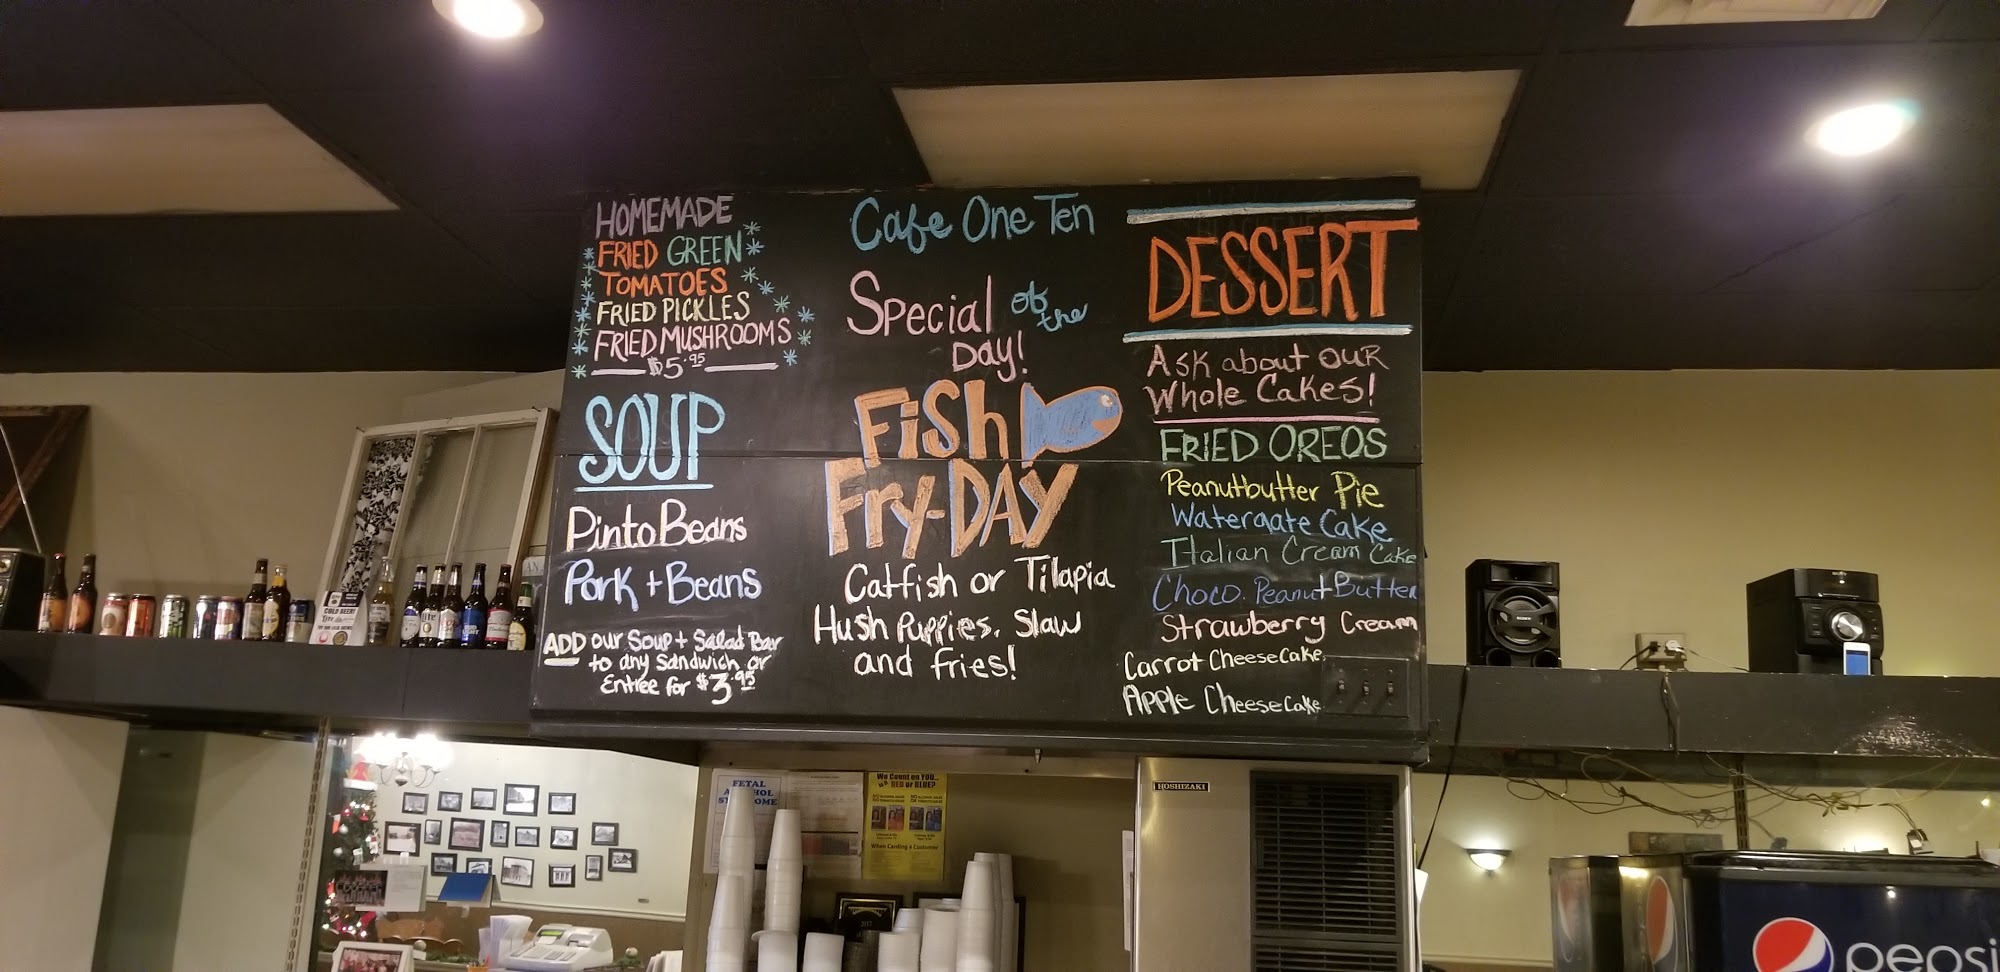 HOMEMADE
FRIED GREEN
TOMATOES
FRIED PICKLES
FRIED MUSHROOMS
$5.95
SOUP
Pinto Beans
Pork + Beans
ADD our Soup + Salad Bar
to any Sandwich or
Entree for $3.95
Cafe One Ten
Special of the
Day!
Fish
Fry-DAY
Catfish or Tilapia
Hush Puppies, Slaw
and fries!
DESSERT
Ask about our
Whole Cakes!
FRIED OREOS
Peanutbutter Pie
Watergate Cake
Italian Cream Cake
Choco. Peanut Butter
Strawberry Cream
Carrot CheeseCake
Apple CheeseCake
COLD BEER!
Lite
FETAL
ALCOHOL
SYNDROME
We Count on YOU...
RED or BLUE?
When Carding a Customer
HOSHIZAKI
2017
pepsi